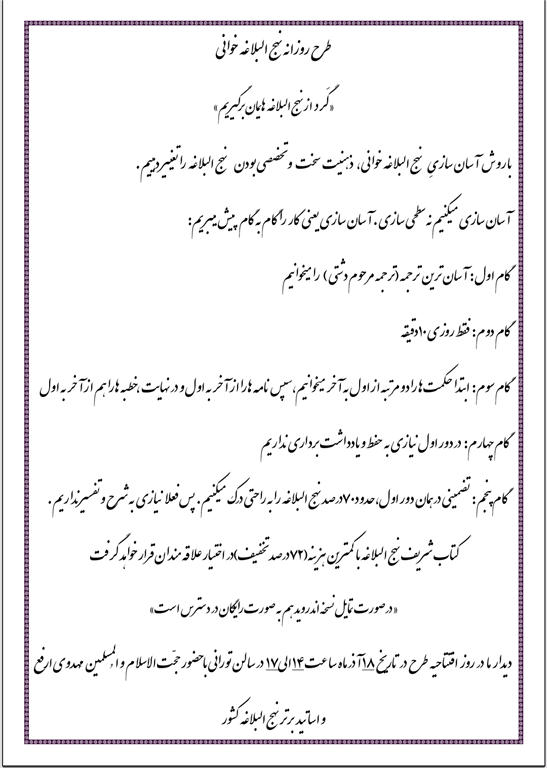 طرح روزانه نهج البلاغه خوانی
«گَرد از نهج البلاغه هایمان برگیریم»
باروش آسان سازیِ نهج البلاغه خوانی، ذهنیت سخت وتخصصی بودن نهج البلاغه راتغییردهیم.
آسان سازی میکنیم نه سطحی سازی. آسان سازی یعنی کار راگام به گام پیش میبریم:
گام اول: آسان ترین ترجمه (ترجمه مرحوم دشتی) رامیخوانیم
گام دوم: فقط روزی ۱۰دقیقه
گام سوم: ابتدا حکمت هارادو مرتبه از اول به آخر میخوانیم،سپس نامه هارا از آخر به اول و در نهایت ،خطبه هاراهم از آخر به اول
گام چهارم: در دور اول نیازی به حفظ و یادداشت برداری نداریم
گام پنجم: تضمینی درهمان دور اول،حدود۷۰درصدنهج البلاغه رابه راحتی درک میکنیم. پس فعلا نیازی به شرح و تفسیرنداریم.
کتاب شریف نهج البلاغه با کمترین هزینه(۷۲درصد تخفیف)در اختیار علاقه مندان قرار خواهد گرفت
«درصورت تمایل نسخه اندرویدهم به صورت رایگان در دسترس است»
دیدار ما در روز افتتاحیه طرح در تاریخ ۱۸آذرماه ساعت ۱۴الی۱۷ در سالن تورانی باحضور حجّت الاسلام و المسلمین مهدوی ارفع
و اساتید برتر نهج البلاغه کشور